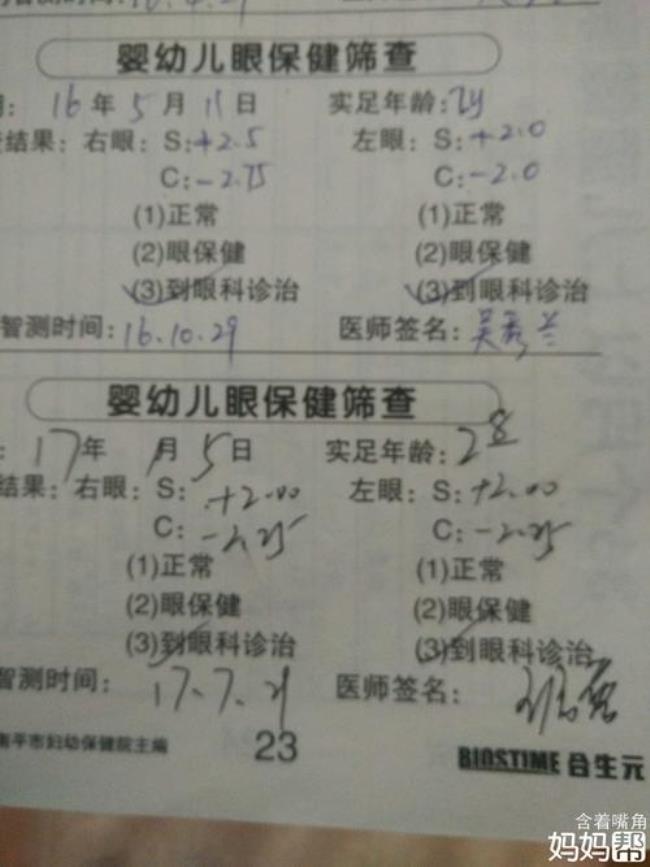 婴幼儿眼保健筛查
16年5月11日 实足年龄:2y
结果:右眼:S:+2.5 左眼:S:+2.0
C:-2.75 C:-2.0
(1)正常 (1)正常
(2)眼保健 (2)眼保健
(3)到眼科诊治 (3)到眼科诊治
智测时间:16.10.29 医师签名:吴秀兰
婴幼儿眼保健筛查
17年 月5日 实足年龄:28
结果:右眼:S:+2.00 左眼:S:+2.00
C:-2.25 C:-2.25
(1)正常 (1)正常
(2)眼保健 (2)眼保健
(3)到眼科诊治 (3)到眼科诊治
智测时间:17.7.21 医师签名:
南平市妇幼保健院主编 23 BIOSTIME 合生元
含着嘴角
妈妈帮